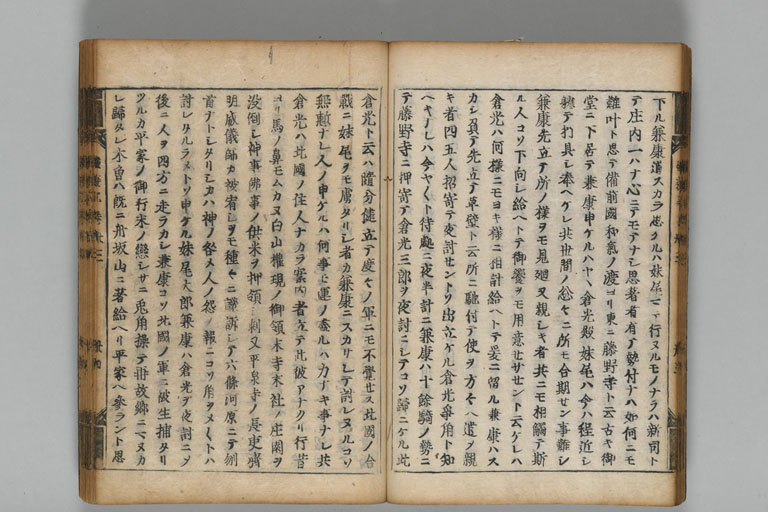 下ル兼康道スカラ思ケルハ妹尾ニテ行ヌルモノナラハ新司ト
テ庄内一ハナ心ニモテナシ思者有テ勢付ナハ如何ニモ
難叶ト思テ備前國和氣ノ渡ヨリ東ニ藤野寺ト云古キ御
堂ニ下居テ兼康申ケルハヤヽ倉光殿妹尾ハ今ハ程近シ
軈テ打具シ奉ヘケレ共世間ノ怱々ニ所モ合期セン事難シ
兼康先立テ所ノ様ヲモ見廻又親シキ者共ニモ相觸テ斯
ル人コソ下向シ給ヘトテ御饗ヲモ用意セサセント云ケレハ
倉光ハ何様ニモヨキ様ニ相計給ヘトテ爰ニ留ル兼康ハス
カシ負テ先立テ草壁ト云所ニ馳付テ使ヲ方々ヘ遣シ親
キ者四五人招寄テ夜討セントソ出立ケル倉光争角ト知
ヘキナレハ今ヤ〱ト待處ニ夜半計ニ兼康ハ十餘騎ノ勢ニ
テ藤野寺ニ押寄テ倉光三郎ヲ夜討ニシテコソ歸ニケル此
倉光ト云ハ隨分健立テ度々ノ軍ニモ不覺セス北國ノ合
戦ニ妹尾ヲモ虜タリシ者カ兼康ニスカサレテ討レヌルコソ
無慙ナレ人ノ申ケルハ何事モ運ノ盡ルハ力ナキ事ナレ共
倉光ハ北國ノ住人ナカラ案内者立テ此彼アナクリ行昔
ヨリ馬ノ鼻モムカヌ白山權現ノ御領末寺末社ノ庄園ヲ
没倒シ神事佛事ノ供米ヲ押領シ剩又平泉寺ノ長吏齊
明威儀師カ被宥シヲモ種々ニ讒訴シテ六條河原ニテ刎
首ナトシタリシカハ神ノ咎メ人ノ怨ノ報ニコソ角ヲメ〱トハ
討レケルラメトソ申ケル妹尾太郎兼康ハ倉光ヲ夜討ニシテ
後ニ人ヲ四方ニ走ラカシ兼康コソ北國ノ軍ニ被生捕タリ
ツルカ平家ノ御行末ノ戀シサニ兎角操テ故郷ニヌカ
レ歸タレ木曽ハ既ニ舟坂山ニ著給ヘリ平家ヘ參ラント思